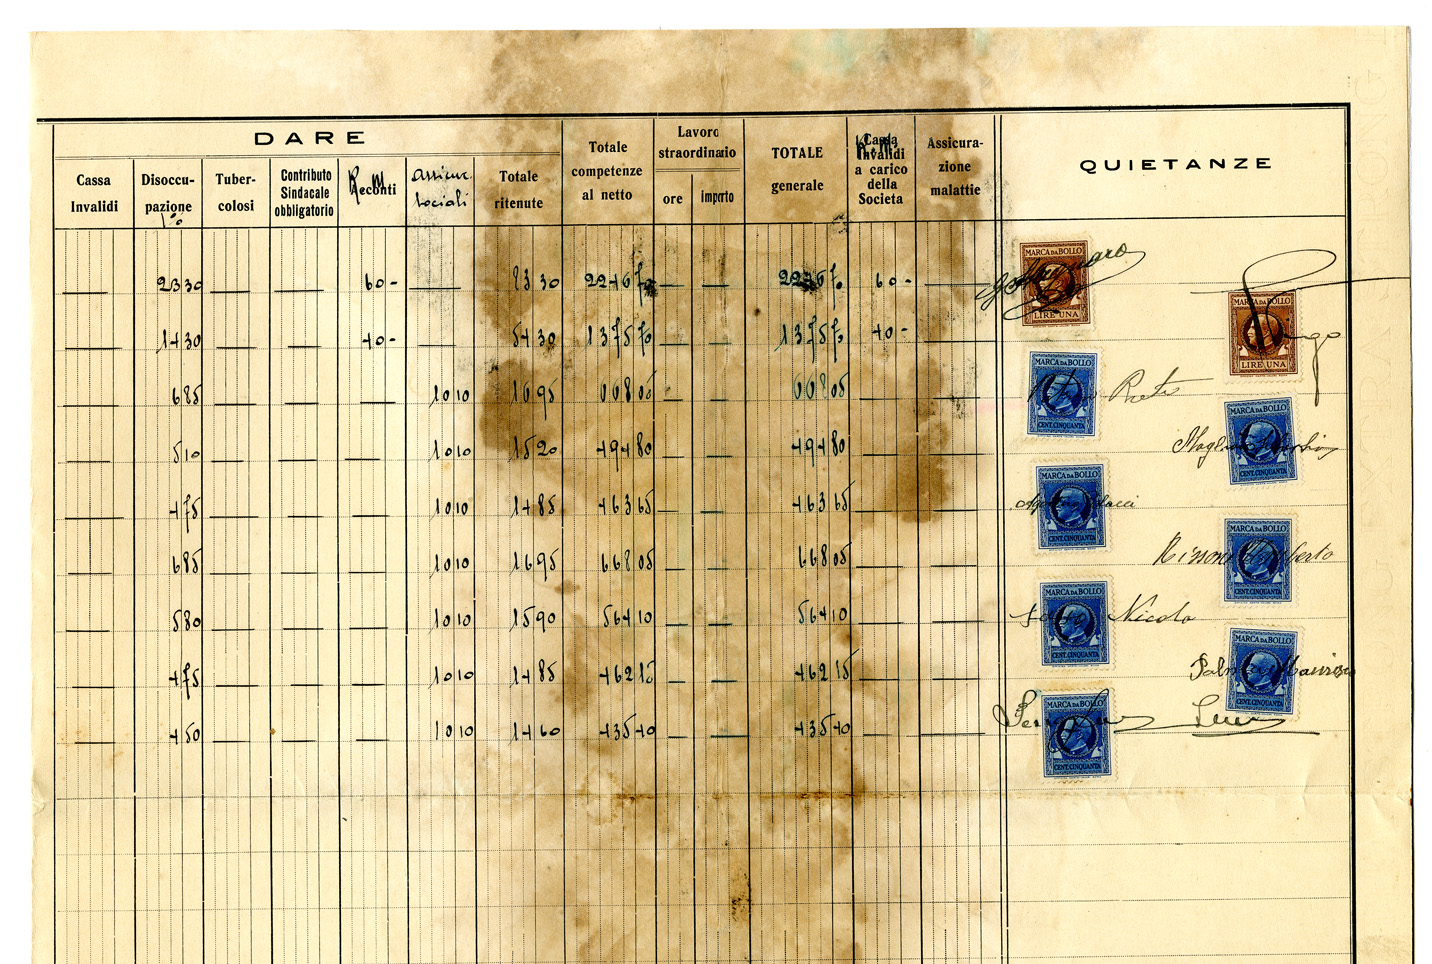 DARE
QUIETANZE
Cassa Invalidi
Disoccupazione 1%
Tubercolosi
Contributo Sindacale obbligatorio
R. M.
Assicur. sociali
Totale ritenute
Totale competenze al netto
Lavoro straordinario
ore
importo
TOTALE generale
Cassa Invalidi a carico della Societa
R. M.
Assicura-zione malattie
— 23 30 — — 60 - — 83 30 2216 70 — — 60 - —
— 14 30 — — 40 - — 54 30 1375 70 — — 1375 70 40 - —
— 6 85 — — — 10 10 16 95 — — — —
— 5 10 — — — 10 10 15 20 494 80 — — 494 80 — —
— 4 75 — — — 10 10 14 85 463 65 — — 463 65 — —
— 6 85 — — — 10 10 16 95 668 05 — — 668 05 — —
— 5 80 — — — 10 10 15 90 564 10 — — 564 10 — —
— 4 75 — — — 10 10 14 85 462 15 — — 462 15 — —
— 4 50 — — — 10 10 14 60 435 40 — — 435 40 — —
MARCA DA BOLLO
LIRE UNA
MARCA DA BOLLO
LIRE UNA
MARCA DA BOLLO
CENT. CINQUANTA
MARCA DA BOLLO
CENT. CINQUANTA
MARCA DA BOLLO
CENT. CINQUANTA
MARCA DA BOLLO
CENT. CINQUANTA
Umberto
MARCA DA BOLLO
CENT. CINQUANTA
Nicola
MARCA DA BOLLO
CENT. CINQUANTA
MARCA DA BOLLO
CENT. CINQUANTA